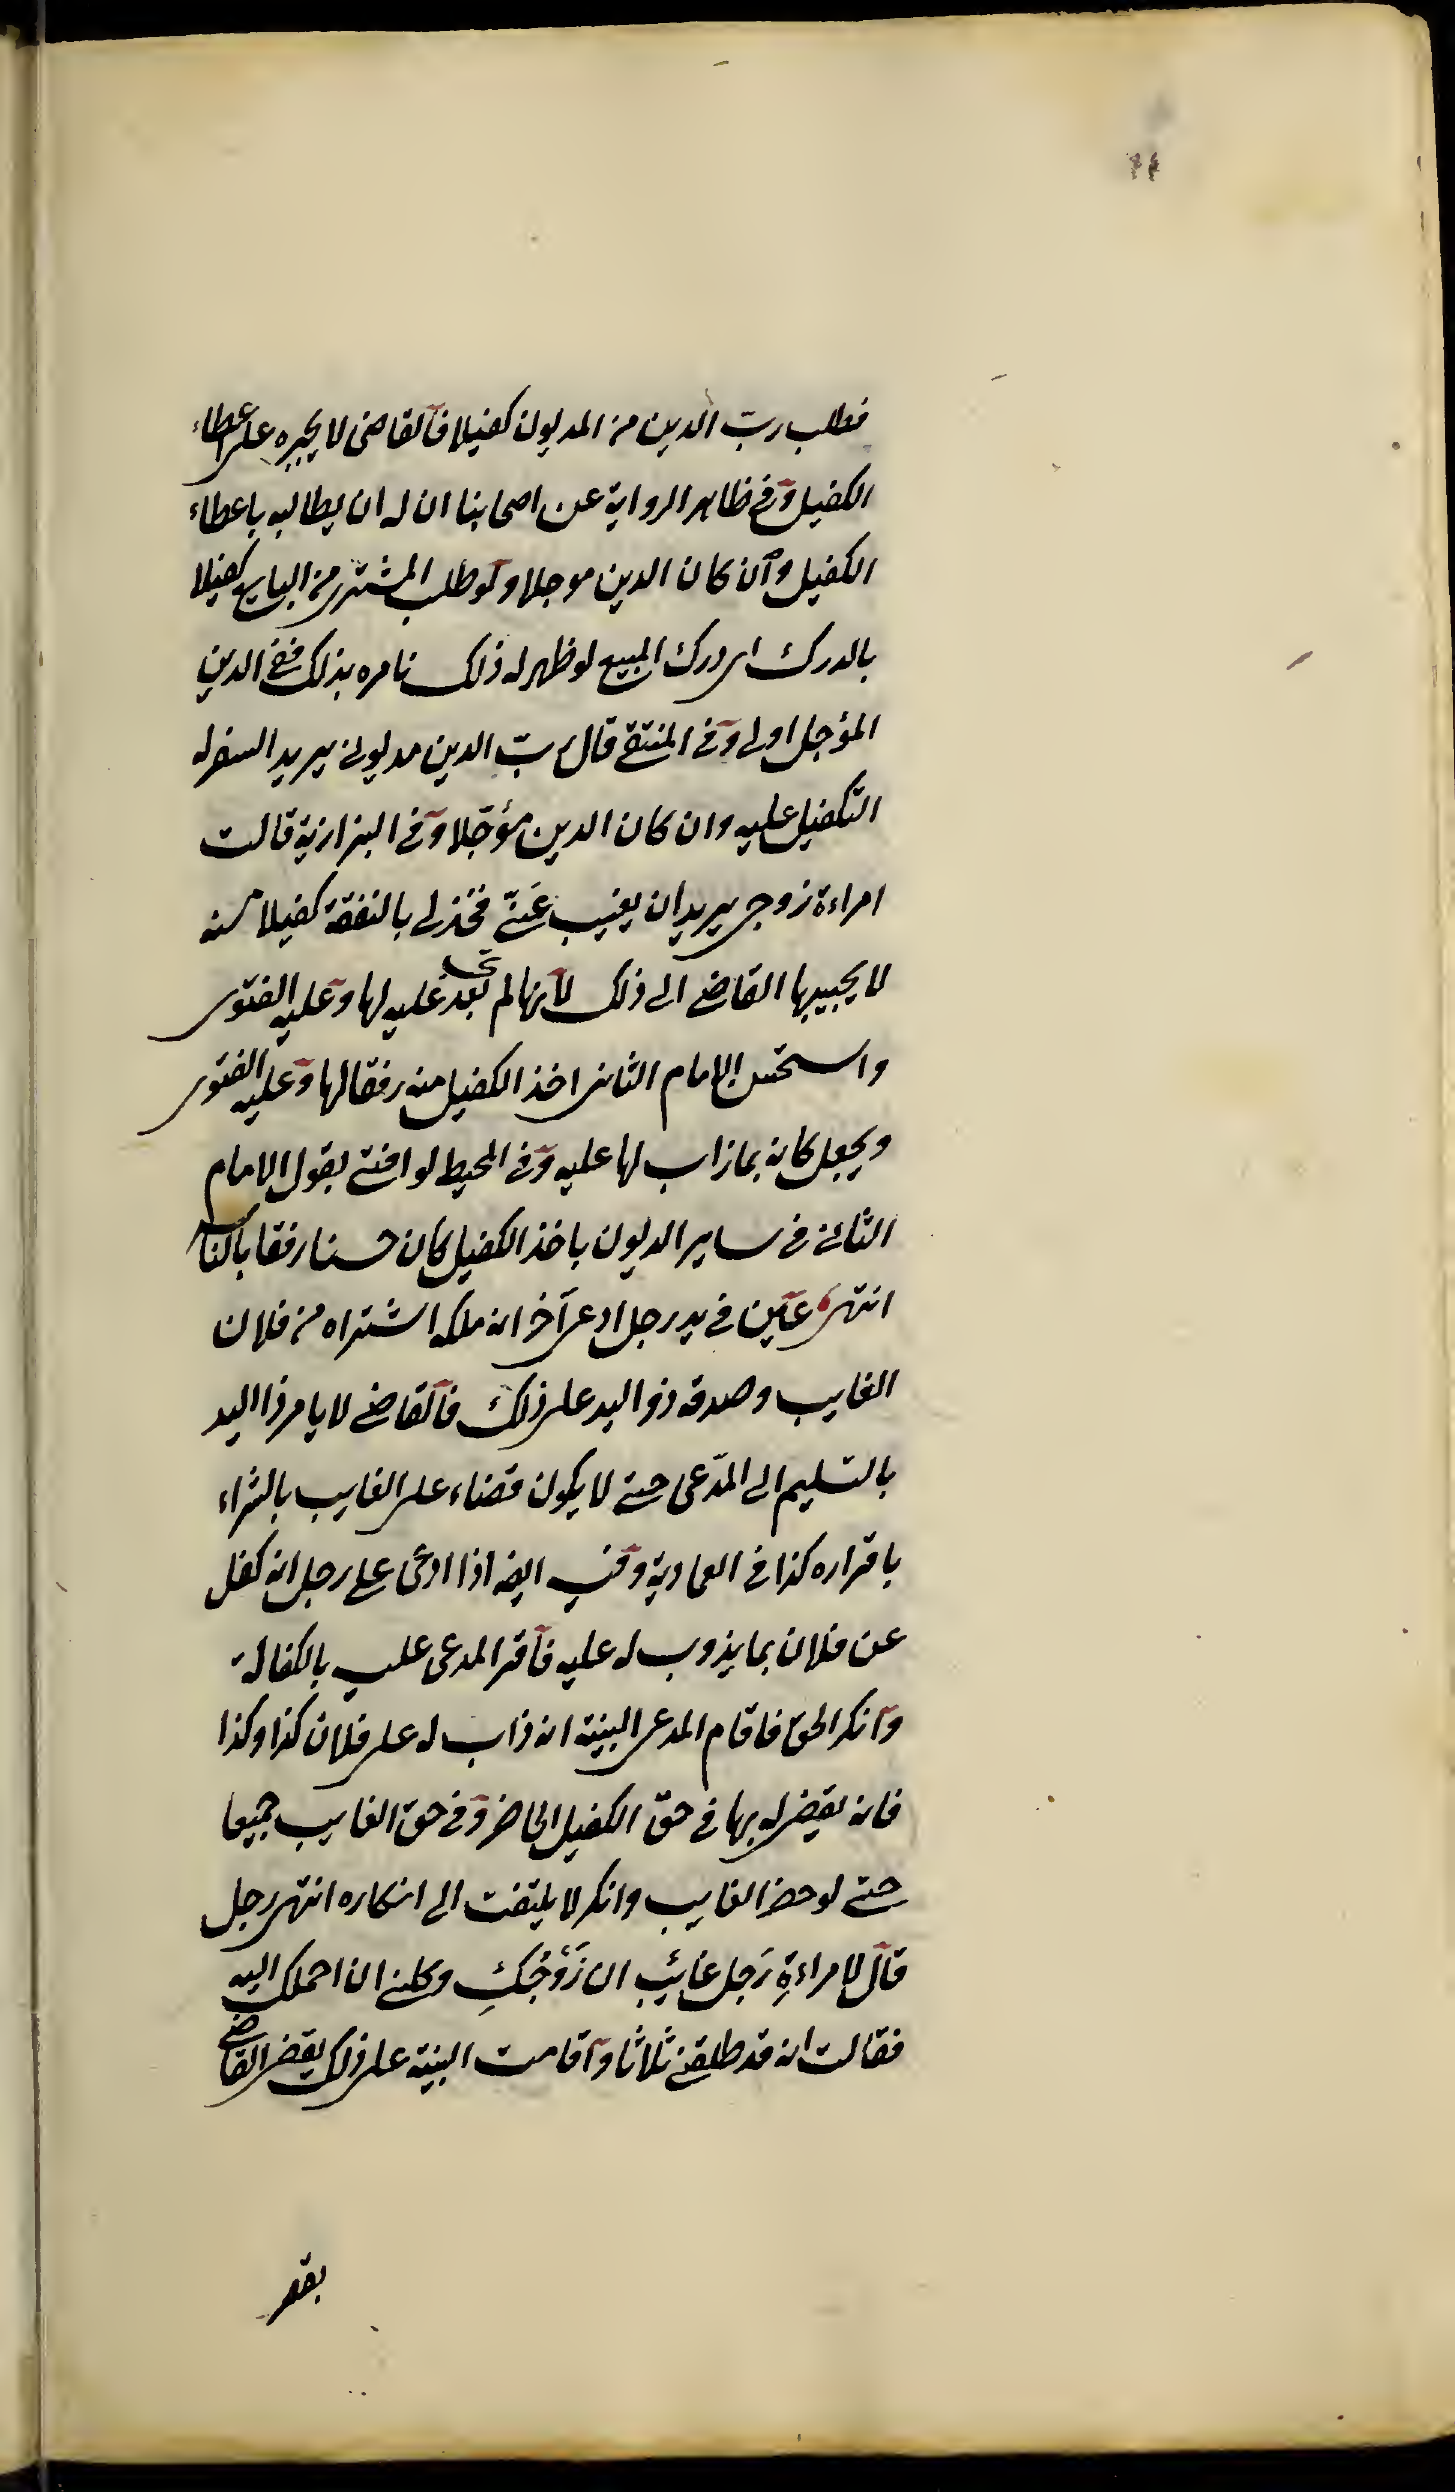 ٢٤
فطلب رب الدين من المديون كفيلا فالقاضى لا يجبره على اعطاء
الكفيل وفي ظاهر الرواية عن اصحابنا ان له ان يطالبه باعطاء
الكفيل وان كان الدين موجلا ولو طلب المشترى من البايع كفيلا
بالدرك اى درك المبيع لو ظهر له ذلك نامره بذلك ففي الدين
المؤجل اولى وفي المنتقى قال رب الدين مديونى يريد السفر له
التكفيل عليه وان كان الدين مؤجلا وفي البزازية قالت
امراءة زوجى يريد ان يغيب عني فخذ لى بالنفقة كفيلا منه
لا يجيبها القاضي الى ذلك لانها لم تجب بعد عليه لها وعليه الفتوى
واستحسن الامام الثانى اخذ الكفيل منه رفقا لها وعليه الفتوى
ويجعل كانه بما ذاب لها عليه وفي المحيط لو افتى بقول الامام
الثاني في ساير الديون باخذ الكفيل كان حسنا رفقا بالناس
انتهى عين في يد رجل ادعى آخر انه ملكه اشتراه من فلان
الغايب وصدقه ذو اليد على ذلك فالقاضي لا يامر ذا اليد
بالتسليم الى المدعى حتى لا يكون قضاء على الغايب بالشراء
باقراره كذا في العمادية وفيه ايضا اذا ادعى على رجل انه كفل
عن فلان بما يذوب له عليه فاقر المدعى عليه بالكفالة
وانكر الحق فاقام المدعى البينة انه ذاب له على فلان كذا وكذا
فانه يقضى له بها في حق الكفيل الحاضر وفي حق الغايب جميعا
حتى لو حضر الغايب وانكر لا يلتفت الى انكاره انتهى رجل
قال لامراءةِ رَجل غائب ان زَوْجَكِ وكلنى ان احملك اليه
فقالت انه قد طلقنى ثلاثا واقامت البينة على ذلك يقضى القاضي
بقصر